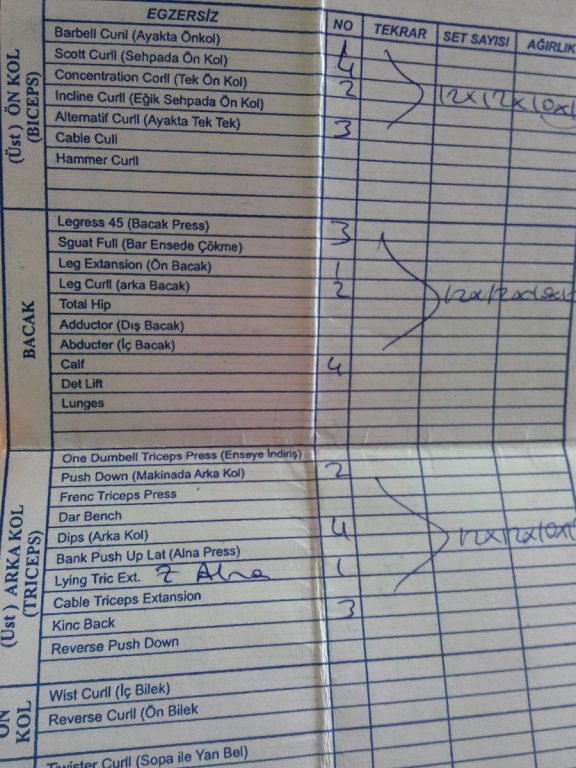 EGZERSİZ NO TEKRAR SET SAYISI AĞIRLIK
(Üst) ÖN KOL
(BICEPS)
Barbell Curil (Ayakta Önkol) 1
Scott Curll (Sehpada Ön Kol) 4
Concentration Corll (Tek Ön Kol) 2
Incline Curll (Eğik Sehpada Ön Kol) 12x12x10x1
Alternatif Curll (Ayakta Tek Tek) 3
Cable Cull
Hammer Curll
BACAK
Legress 45 (Bacak Press) 3
Sguat Full (Bar Ensede Çökme)
Leg Extansion (Ön Bacak) 1
Leg Curll (arka Bacak) 2
Total Hip
Adductor (Dış Bacak)
Abducter (İç Bacak)
Calf 4
Det Lift
Lunges
(Üst) ARKA KOL
(TRICEPS)
One Dumbell Triceps Press (Enseye İndiriş)
Push Down (Makinada Arka Kol) 2
Frenc Triceps Press
Dar Bench
Dips (Arka Kol) 4 12x12x10x1
Bank Push Up Lat (Alna Press)
Lying Tric Ext. Z Alna 1
Cable Triceps Extansion
Kinc Back 3
Reverse Push Down
ÖN
KOL
Wist Curll (İç Bilek)
Reverse Curll (Ön Bilek
Twister Curll (Sopa ile Yan Bel)